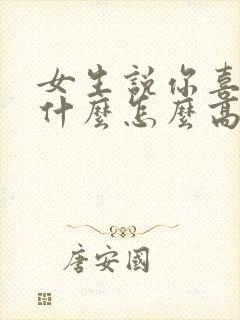 女生説你喜
什麼怎麼高
唐安國